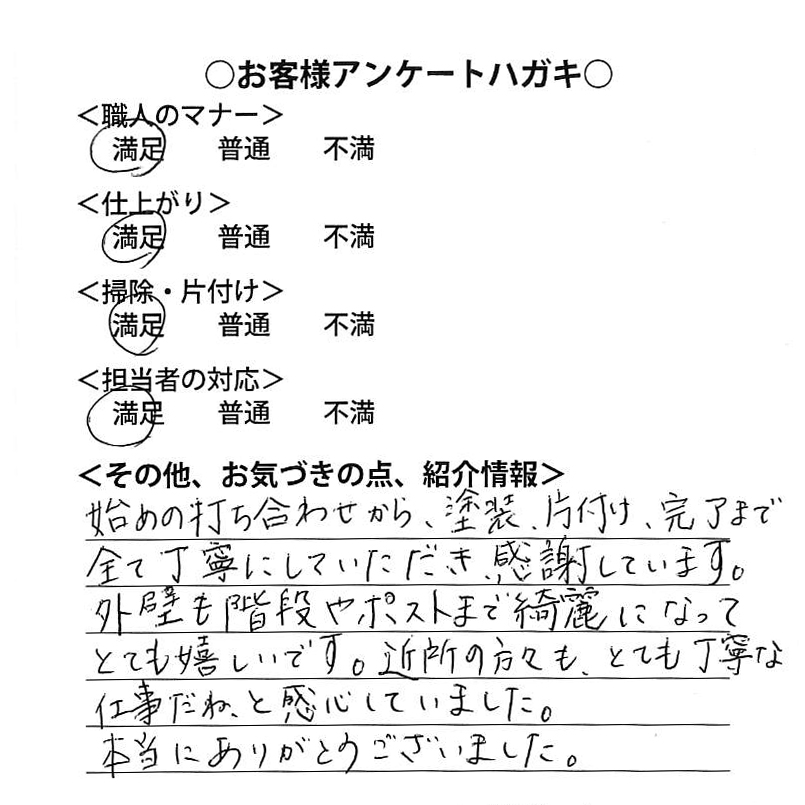 ○お客様アンケートハガキ○
＜職人のマナー＞
満足 普通 不満
＜仕上がり＞
満足 普通 不満
＜掃除・片付け＞
満足 普通 不満
＜担当者の対応＞
満足 普通 不満
＜その他、お気づきの点、紹介情報＞
始めの打ち合わせから、塗装、片付け、完了まで
全て丁寧にしていただき、感謝しています。
外壁も階段やポストまで綺麗になって
とても嬉しいです。近所の方々も、とても丁寧な
仕事だね、と感心していました。
本当にありがとうございました。